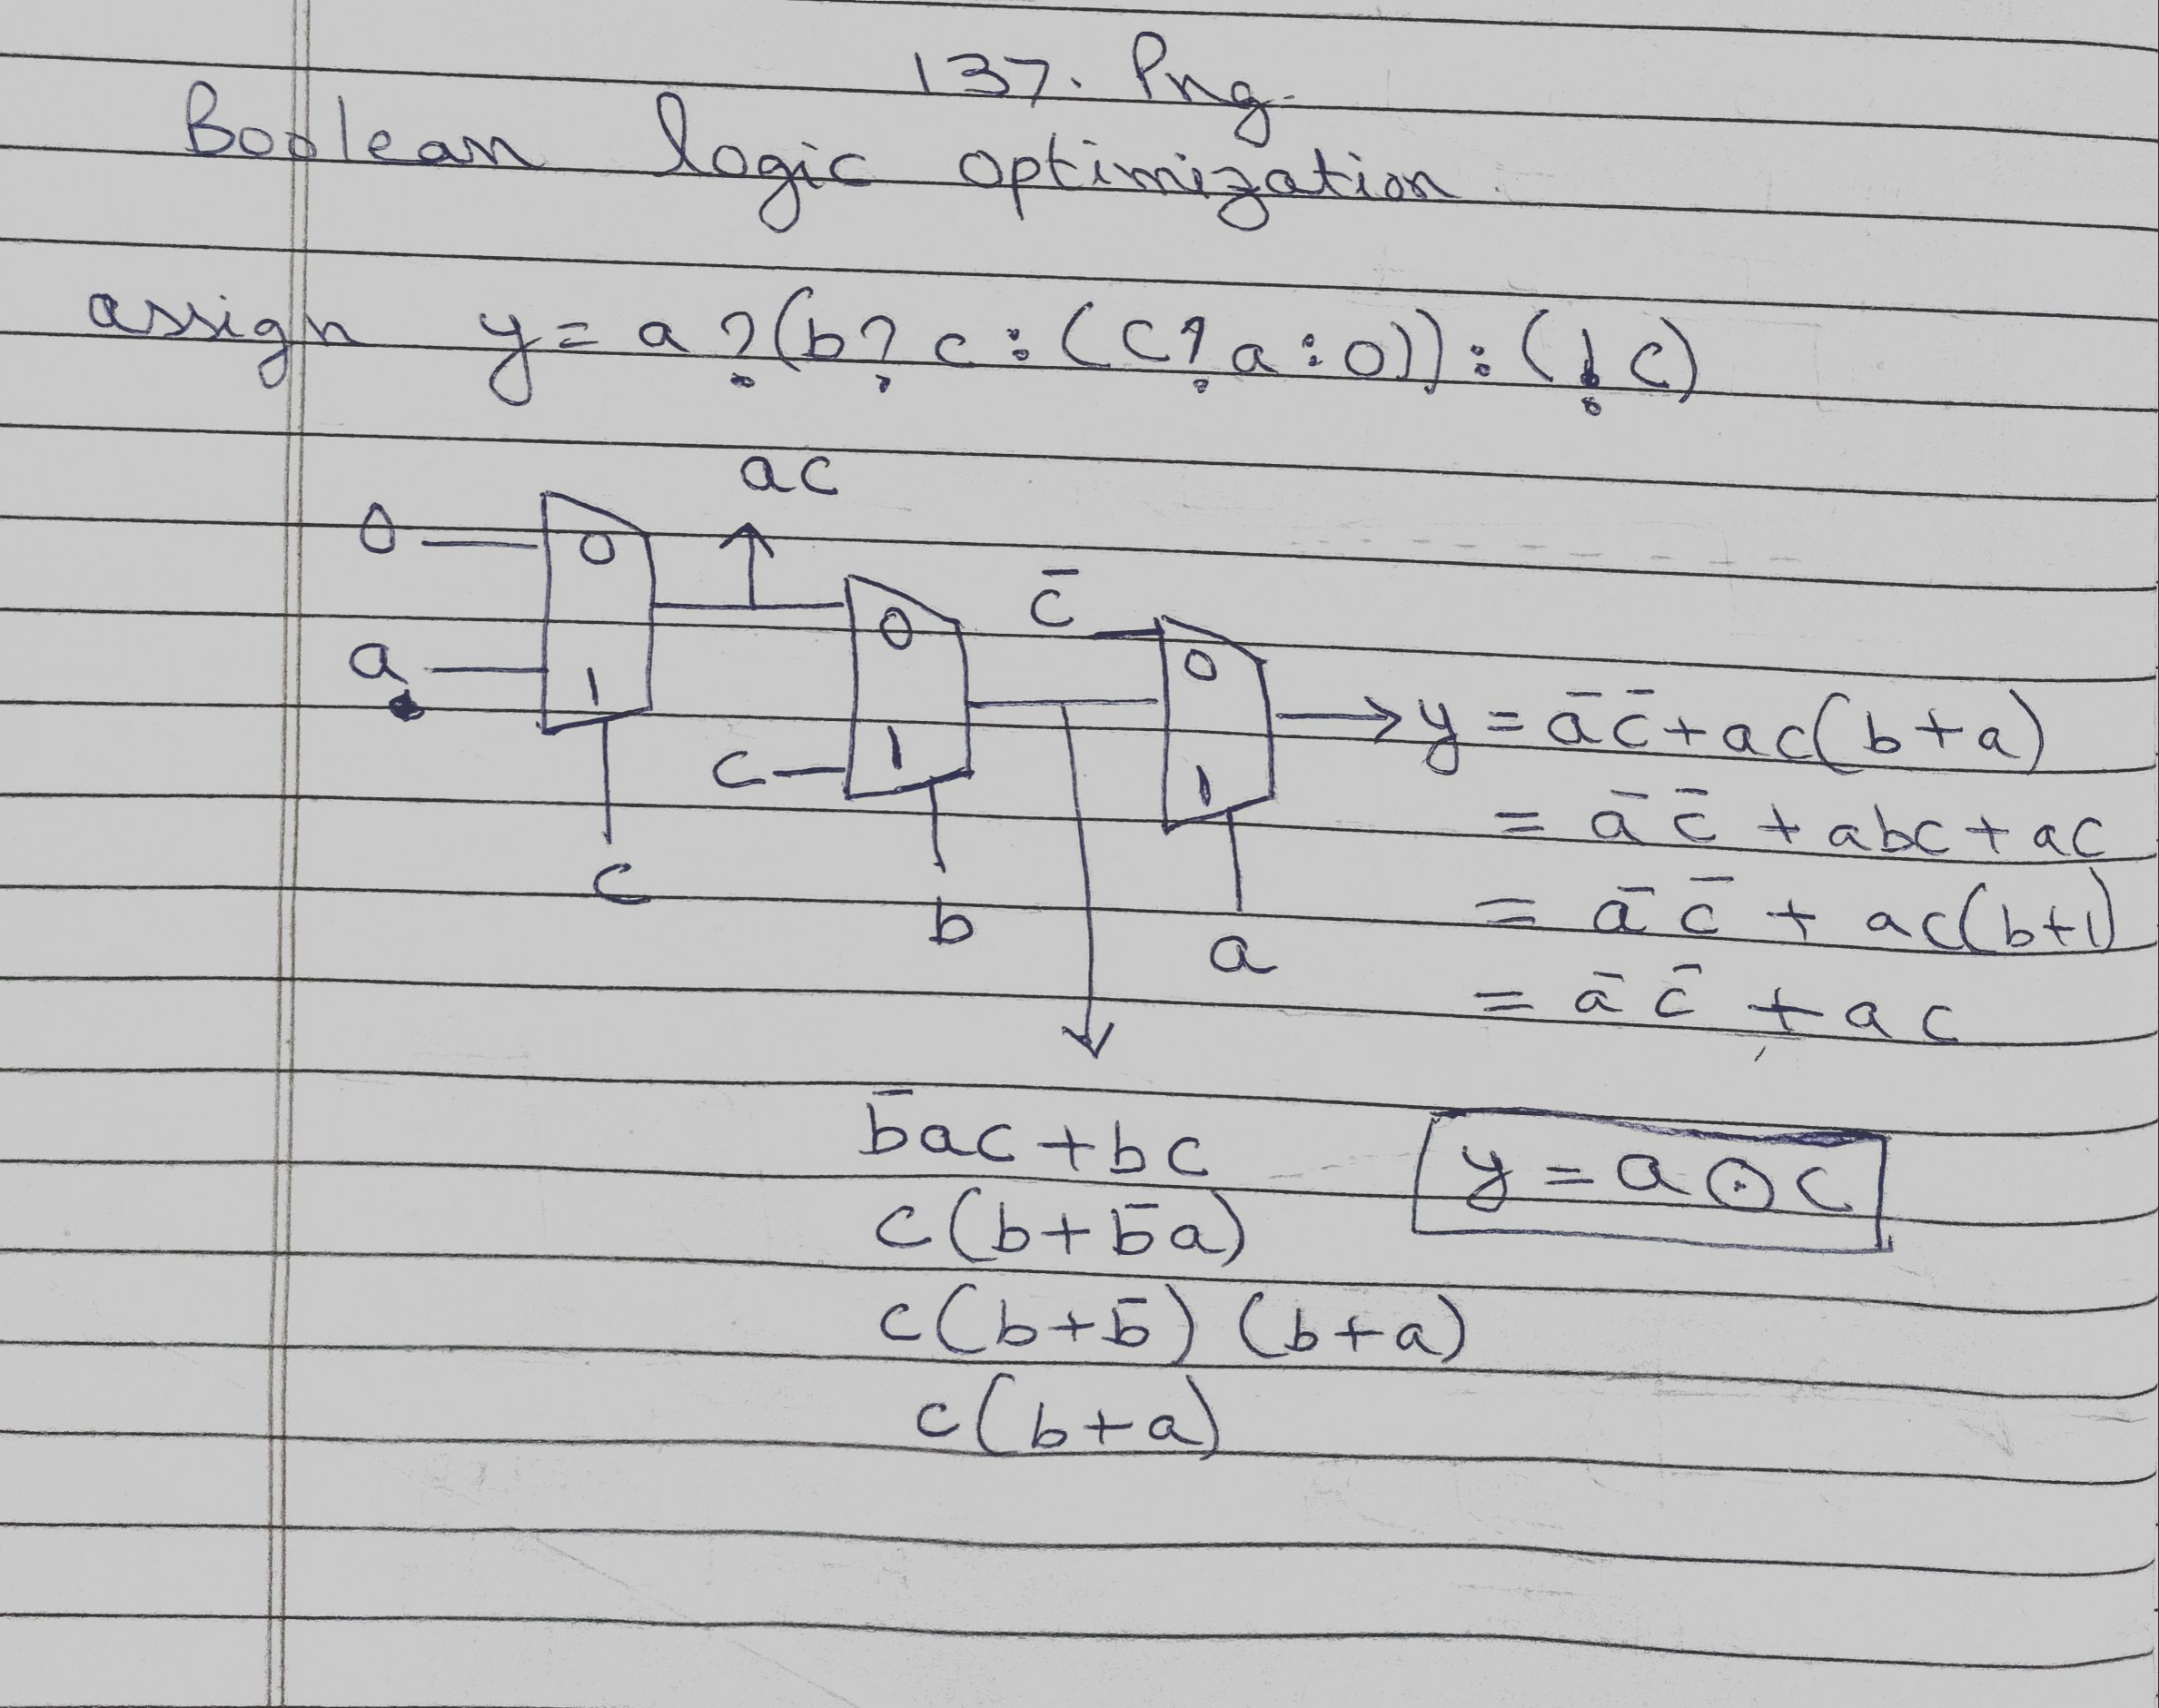 137. Png.
Boolean logic optimization
assign y = a ? (b ? c : (c ? a : 0)) : (! c)
ac
0
0
c̅
0
0
a
1
→ y = a̅ c̅ + ac(b+a)
c
1
1
= a̅ c̅ + abc + ac
c
b
a
= a̅ c̅ + ac(b+1)
= a̅ c̅ + ac
b̅ac + bc
y = a ⊙ c
c(b+b̅a)
c(b+b̅) (b+a)
c(b+a)